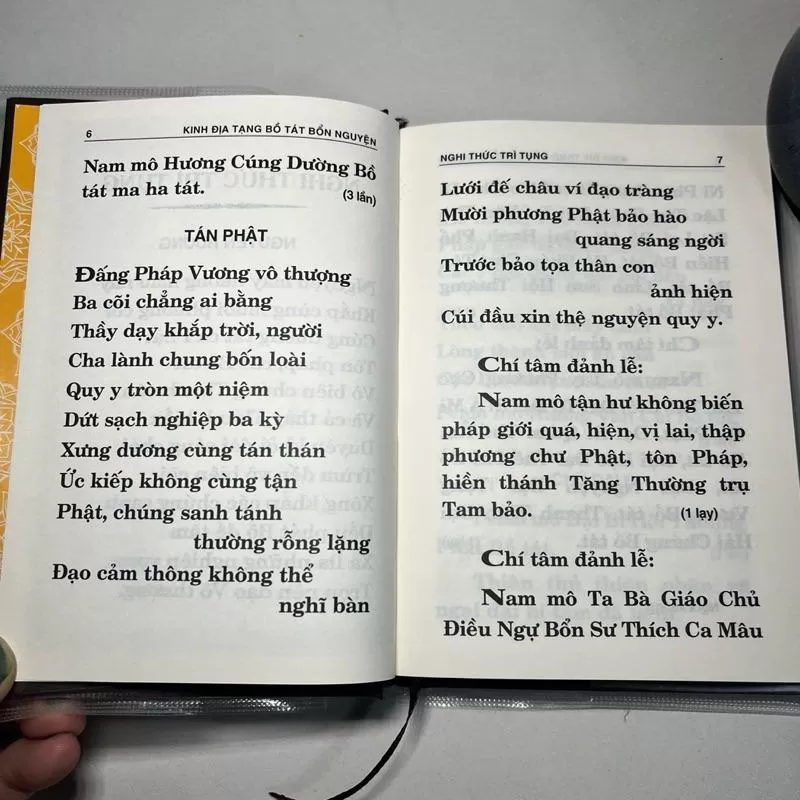 6 KINH ĐỊA TẠNG BỒ TÁT BỔN NGUYỆN
Nam mô Hương Cúng Dường Bồ
tát ma ha tát. (3 lần)
TÁN PHẬT
Đấng Pháp Vương vô thượng
Ba cõi chẳng ai bằng
Thầy dạy khắp trời, người
Cha lành chung bốn loài
Quy y tròn một niệm
Dứt sạch nghiệp ba kỳ
Xưng dương cùng tán thán
Ức kiếp không cùng tận
Phật, chúng sanh tánh
thường rỗng lặng
Đạo cảm thông không thể
nghĩ bàn
NGHI THỨC TRÌ TỤNG 7
Lưới đế châu ví đạo tràng
Mười phương Phật bảo hào
quang sáng ngời
Trước bảo tọa thân con
ảnh hiện
Cúi đầu xin thệ nguyện quy y.
Chí tâm đảnh lễ:
Nam mô tận hư không biến
pháp giới quá, hiện, vị lai, thập
phương chư Phật, tôn Pháp,
hiền thánh Tăng Thường trụ
Tam bảo. (1 lạy)
Chí tâm đảnh lễ:
Nam mô Ta Bà Giáo Chủ
Điều Ngự Bổn Sư Thích Ca Mâu